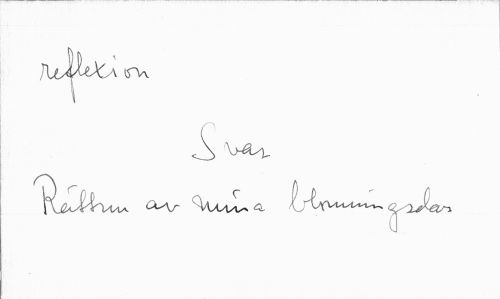 reflexion
Svar
av mina blomningsdar